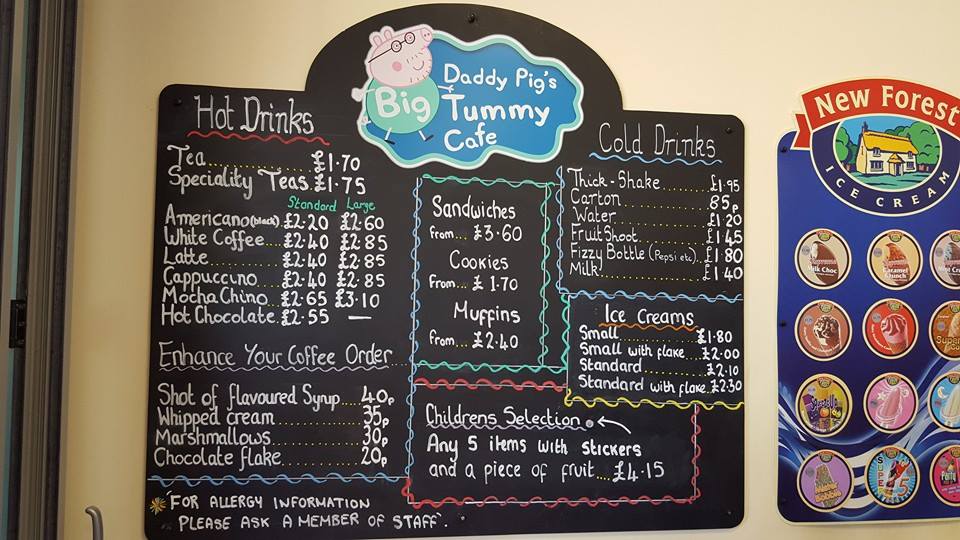 Daddy Pig's
Big Tummy
Cafe
Hot Drinks
Tea £1.70
Speciality Teas. £1.75
Standard Large
Americano (black) £2.20 £2.60
White Coffee £2.40 £2.85
Latte £2.40 £2.85
Cappuccino £2.40 £2.85
Mocha Chino £2.65 £3.10
Hot Chocolate. £2.55 —
Enhance Your Coffee Order
Shot of flavoured Syrup 40p
Whipped cream 35p
Marshmallows 30p
Chocolate flake 20p
*FOR ALLERGY INFORMATION
PLEASE ASK A MEMBER OF STAFF.
Sandwiches
from... £3.60
Cookies
from... £1.70
Muffins
from... £2.40
Childrens Selection
Any 5 items with stickers
and a piece of fruit... £4.15
Cold Drinks
Thick-Shake £1.95
Carton 85p
Water £1.20
Fruit Shoot £1.45
Fizzy Bottle (Pepsi etc).. £1.80
Milk £1.40
Ice Creams
Small £1.80
Small with flake £2.00
Standard £2.10
Standard with flake £2.30
New Forest
ICE CREAM
Milk Choc
Caramel
Crunch